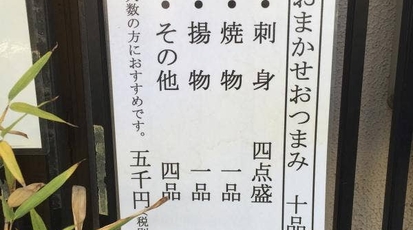 おまかせおつまみ 十品
・刺身 四点盛
・焼物 一品
・揚物 一品
・その他 四品
数の方におすすめです。 五千円